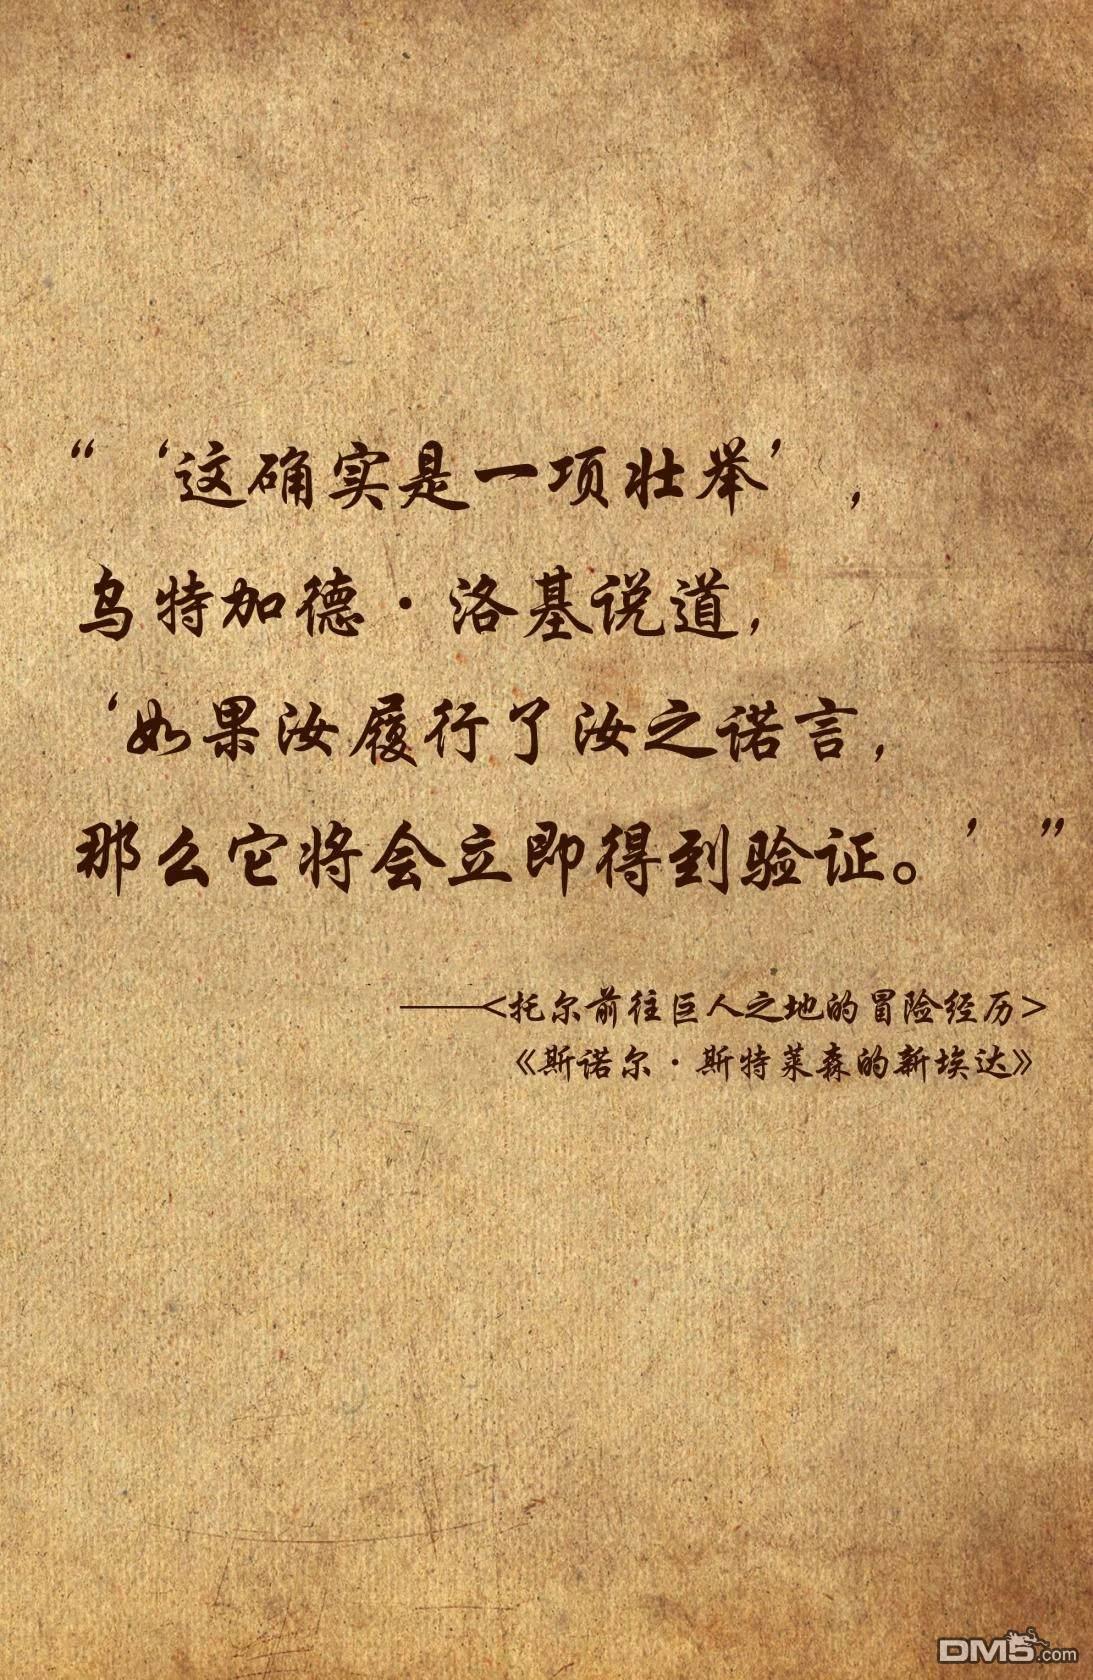 “‘这确实是一项壮举’，
乌特加德·洛基说道，
‘如果汝履行了汝之诺言，
那么它将会立即得到验证。’”
——<托尔前往巨人之地的冒险经历>
《斯诺尔·斯特莱森的新埃达》
DM5.com